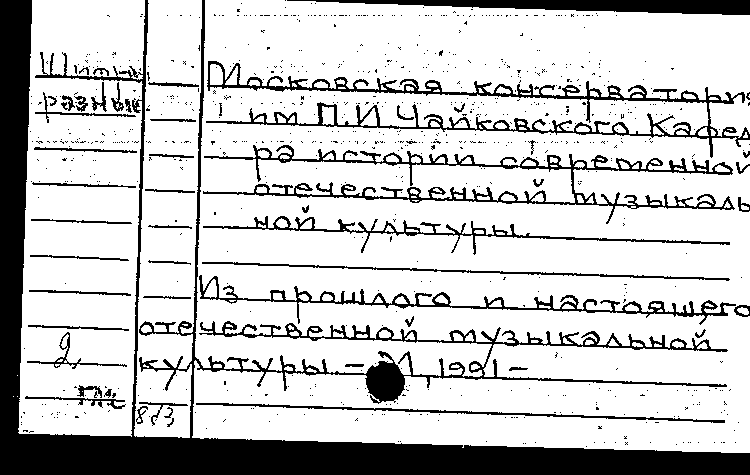 Шифры
разные
Московская консерватория
им П.И Чайковского. Кафед
ра истории современной
отечественной музыкаль
ной культуры.
Из прошлого и настоящего
отечественной музыкальной
культуры. – М, 1991 –
2,